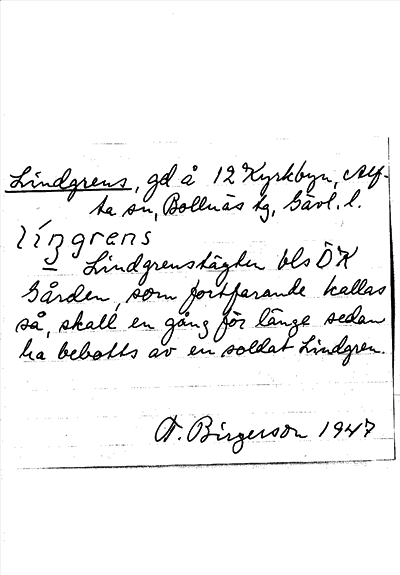 Lindgrens, gd å 12 Kyrkbyn, Alf-
ta sn, Bollnäs tg, Gävl. l.
líŋgrens
— Lindgrenstägten bls ÖK
Gården, som fortfarande kallas
så, skall en gång för länge sedan
ha bebotts av en soldat Lindgren.
A. Birgerson 1947